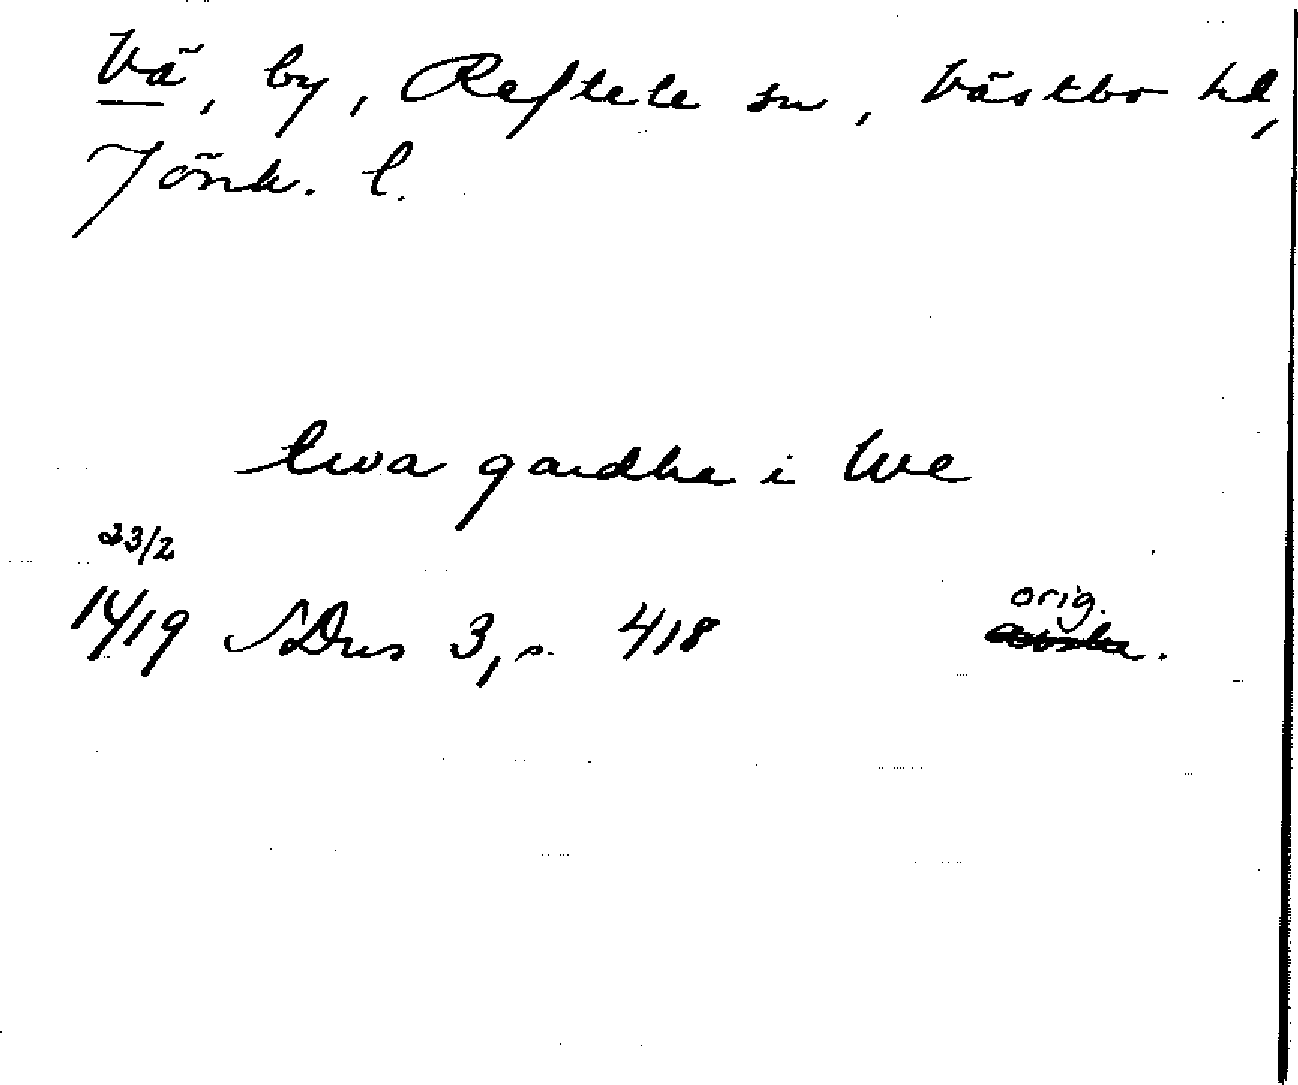 Vä, by, Reftele sn, Västbo hd,
Jönk. l.
twa gardha i We
23/2
1419 SDns 3, s. 418
orig.